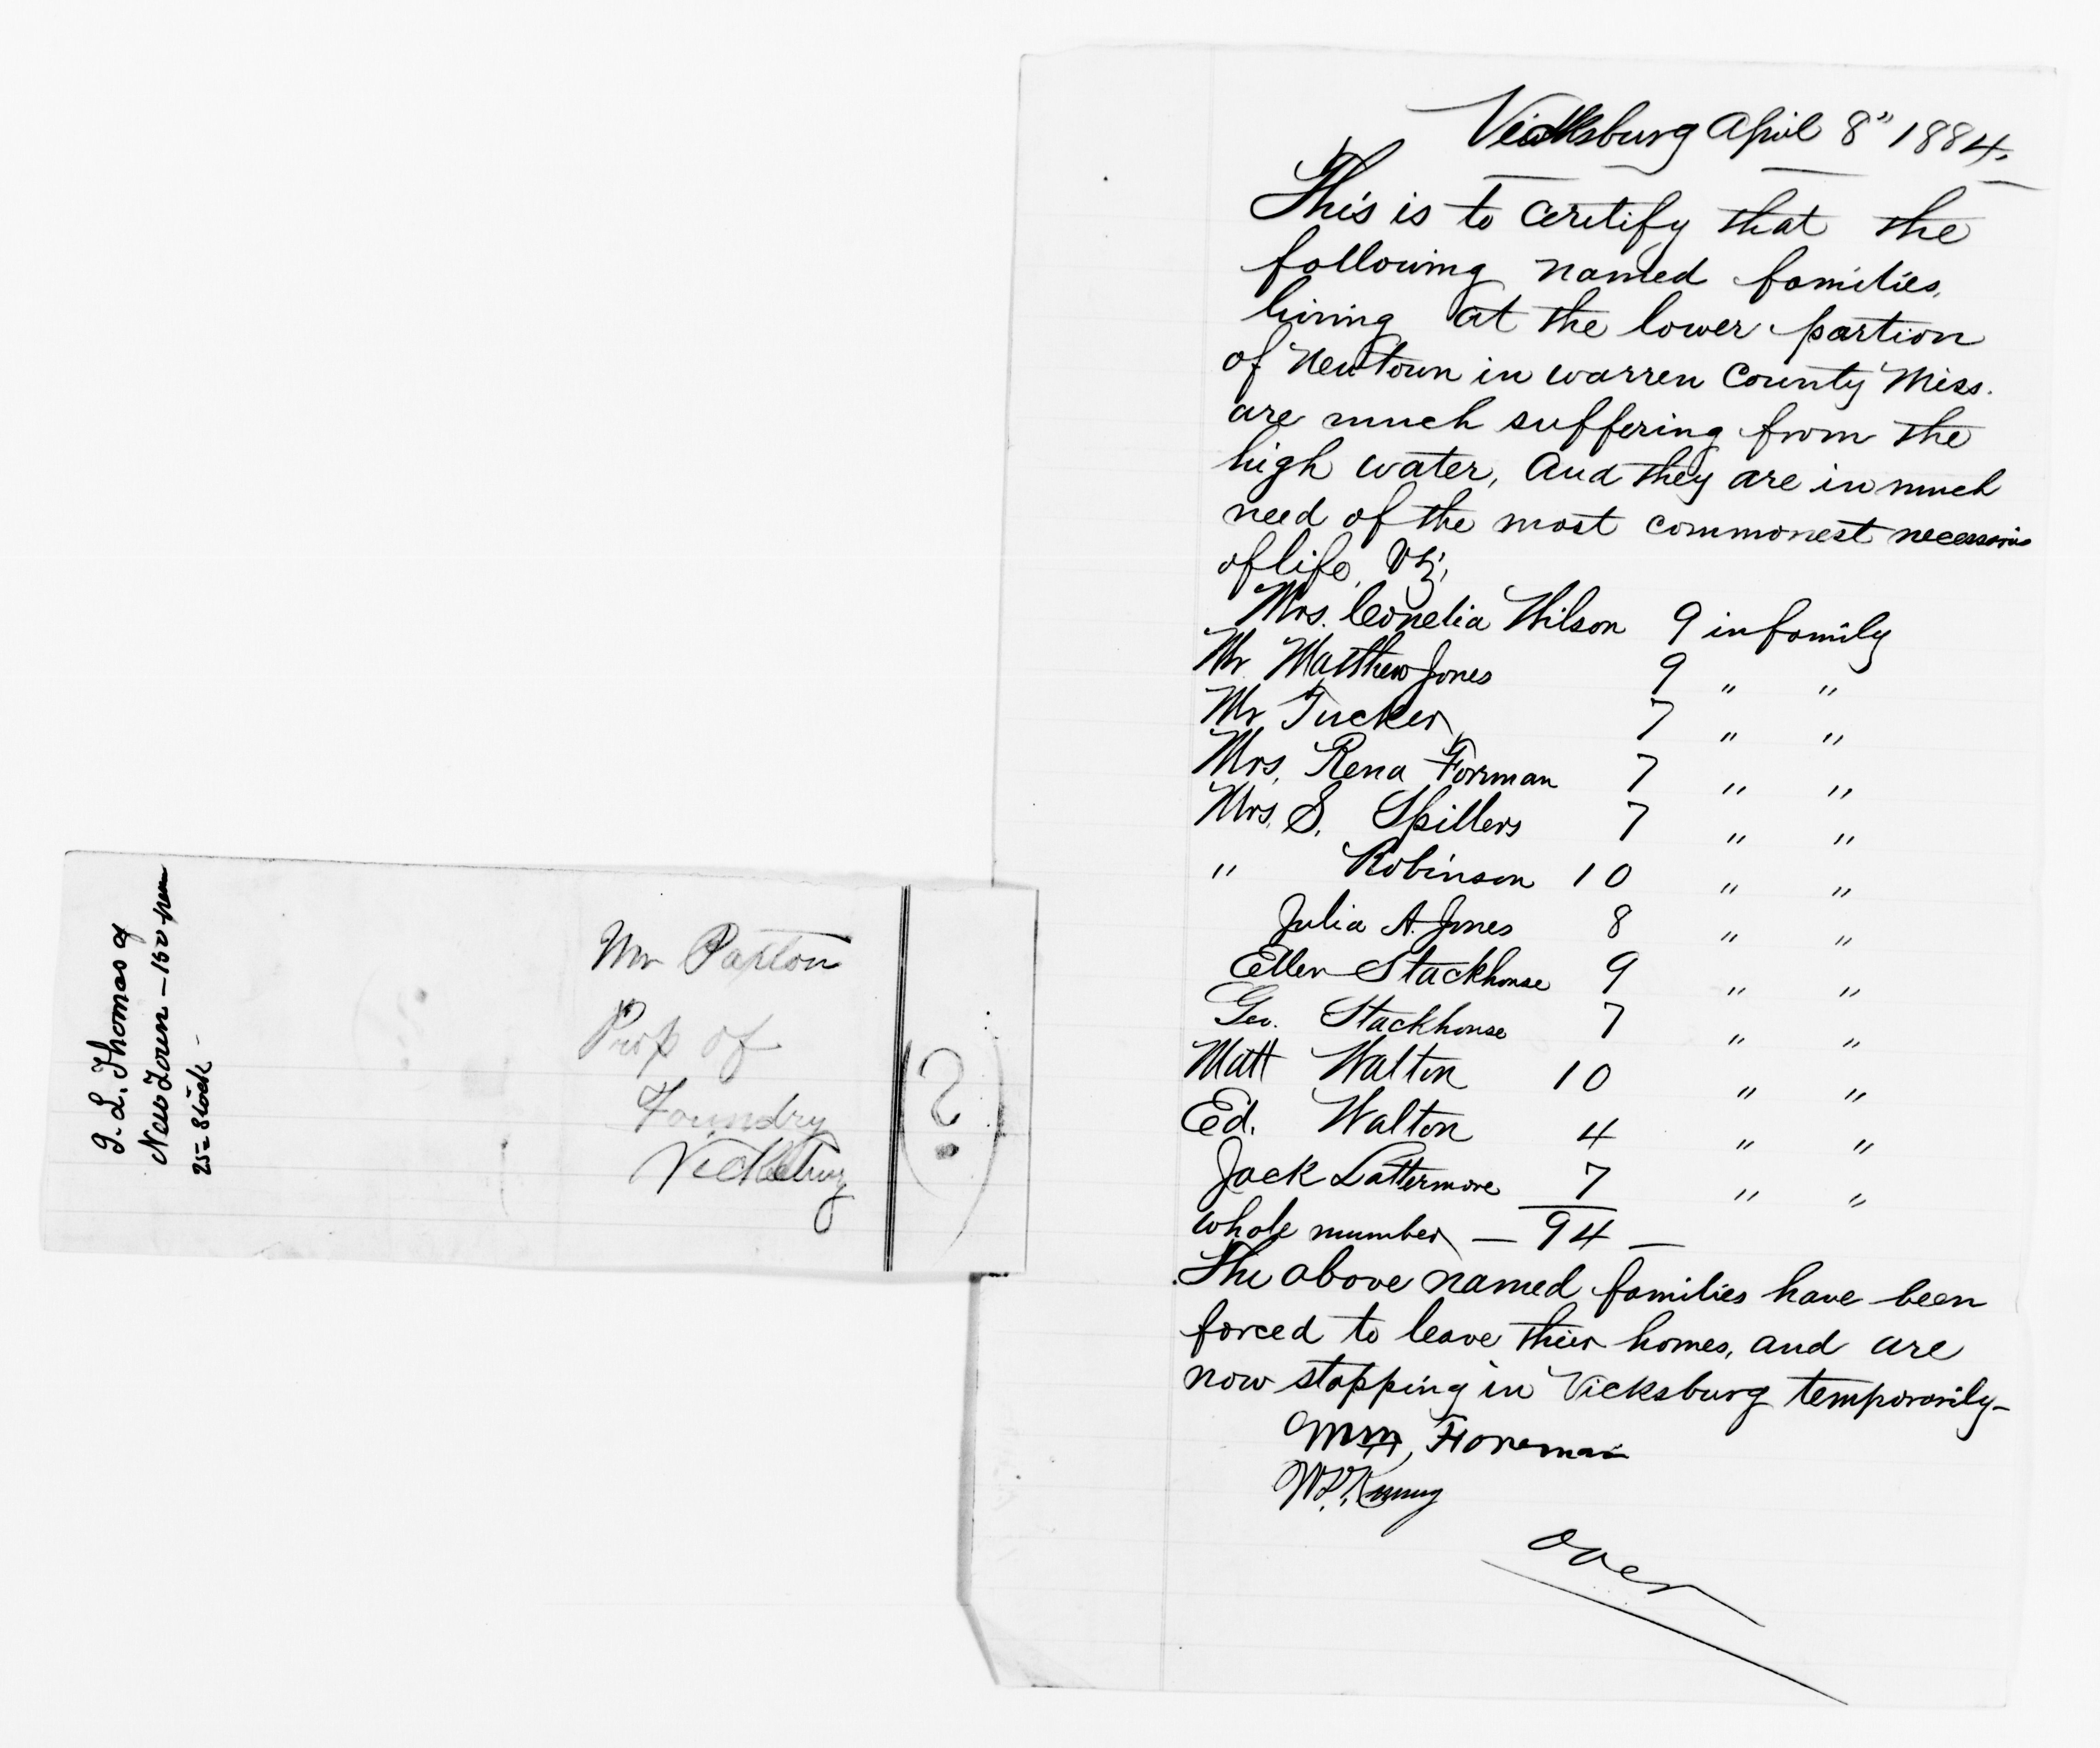 Vicksburg April 8" 1884.
This is to certify that the
following named families,
living at the lower portion
of Newtown in warren County Miss.
are much suffering from the
high water, And they are in much
need of the most commonest
of life, Viz;
Mrs. Cornelia Wilson 9 in family
Mr Matthew Jones 9 " "
Mr Tucker 7 " "
Mrs. Rena Forman 7 " "
Mrs. S. Spillers 7 " "
" Robinson 10 " "
Julia A. Jones 8 " "
Ellen Stackhouse 9 " "
Geo. Stackhouse 7 " "
Matt Walton 10 " "
Ed. Walton 4 " "
Jack Lattermore 7 " "
whole number — 94 —
The above named families have been
forced to leave their homes, and are
now stopping in Vicksburg temporarily—
Wm, Foreman
W.L.
over
Mr Paxton
Prop of
Foundry
Vicksburg
(?)
J. L. Thomas of
New Town — 150
25 = Stock -